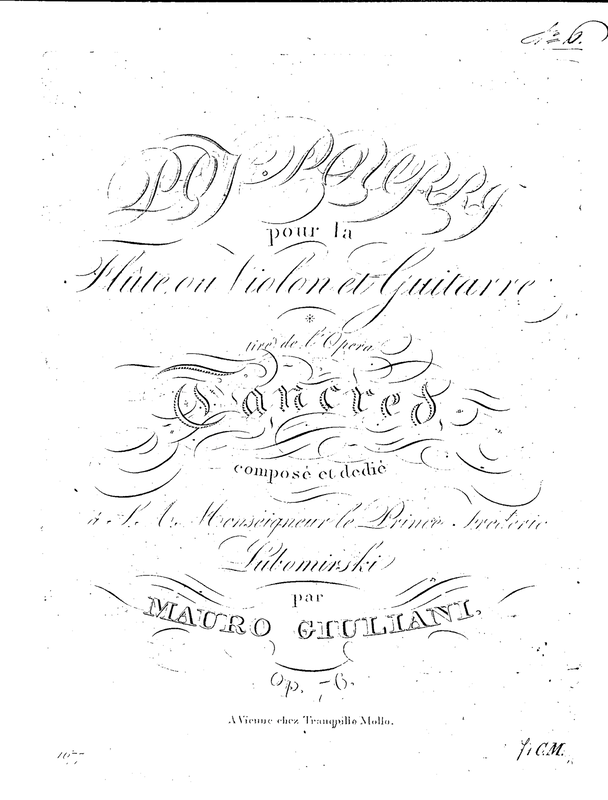 No 6.
POT-POURRY
pour la
Flûte ou Violon et Guitarre
tiré de l'Opera
Tancred,
composé et dedié
à S. A. Monseigneur le Prince Frederic
Lubomirski
par
MAURO GIULIANI,
Op. 76.
A Vienne chez Tranquillo Mollo.
f 1 C.M.